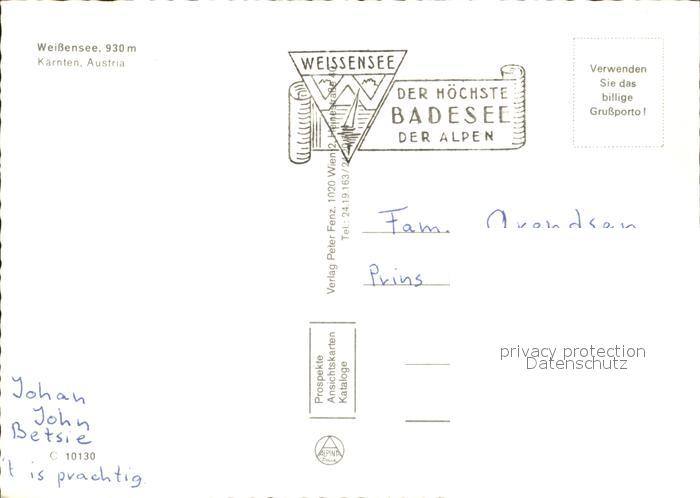 Weißensee, 930 m
Kärnten, Austria
WEISSENSEE
DER HÖCHSTE
BADESEE
DER ALPEN
Verwenden
Sie das
billige
Grußporto!
Verlag Peter Fenz, 1020 Wien 2, Heinestraße 4
Tel.: 24 19 163 / 2
Fam. Arendsen
Prins
privacy protection
Datenschutz
Prospekte
Ansichtskarten
Kataloge
Johan
John
Betsie
C 10130
't is prachtig